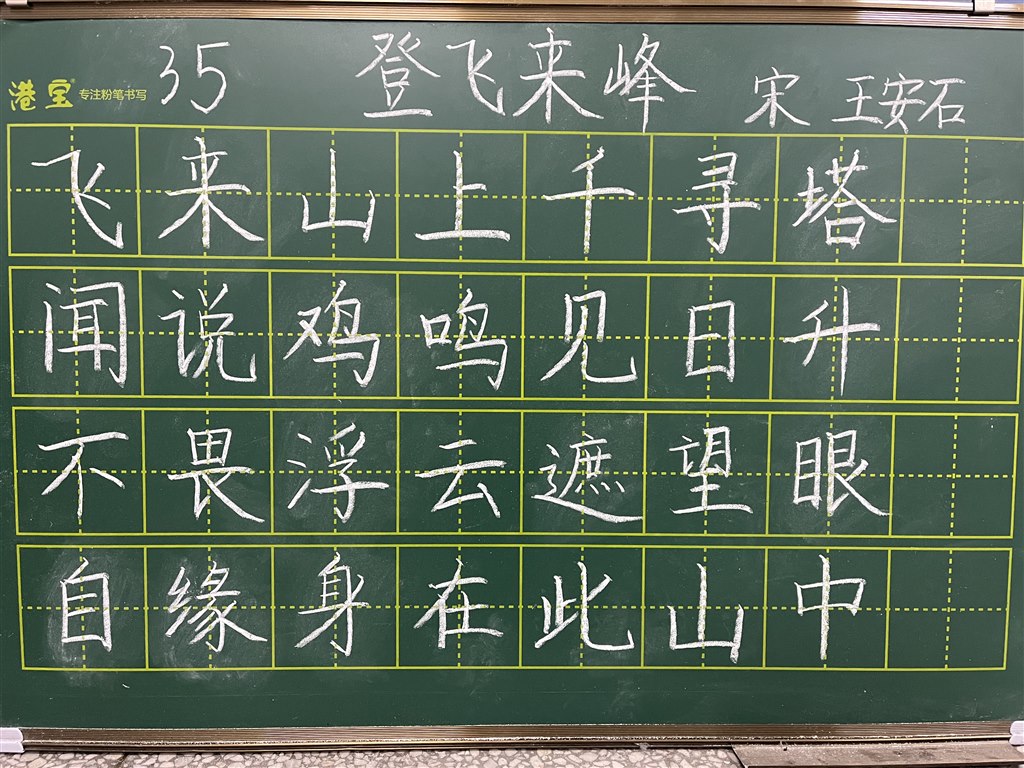 35 登飞来峰 宋 王安石
港宝® 专注粉笔书写
飞来山上千寻塔
闻说鸡鸣见日升
不畏浮云遮望眼
自缘身在此山中